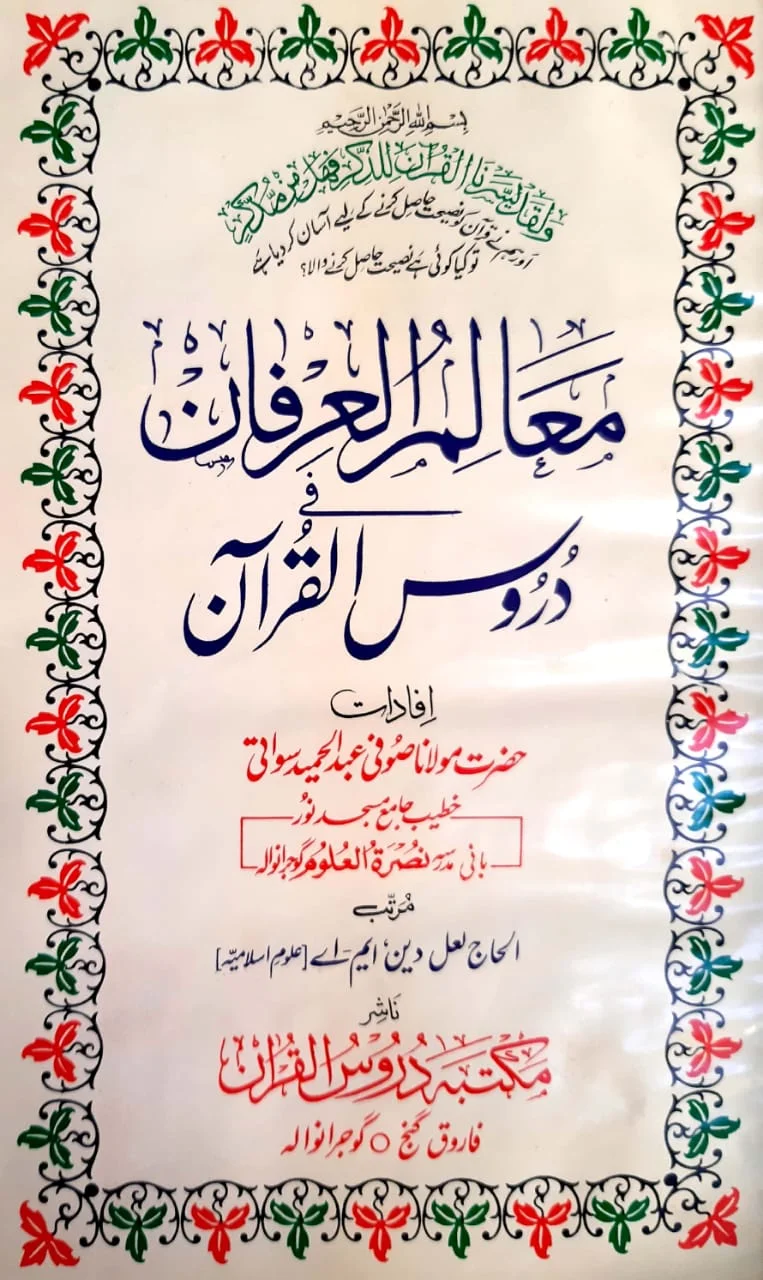 بِسْمِ اللهِ الرَّحْمٰنِ الرَّحِيْمِ
وَلَقَدْ يَسَّرْنَا الْقُرْآنَ لِلذِّكْرِ فَهَلْ مِنْ مُّدَّكِرٍ
اور ہم نے قرآن کو نصیحت حاصل کرنے کے لیے آسان کر دیا ہے
تو کیا کوئی ہے نصیحت حاصل کرنے والا؟
مَعَالِمُ الْعِرْفَان
فِي
دُرُوس القُرآن
اِفادات
حضرت مولانا صُوفی عبدالحمید سواتی
خطیب جامع مسجد نُور
بانی مدرسہ نُصْرَةُ الْعُلُوم گوجرانوالہ
مُرتّب
الحاج لعل دین، ایم-اے [علوم اسلامیّہ]
نَاشِر
مکتبہ دُرُوْسُ القُرآن
فاروق گنج ○ گوجرانوالہ